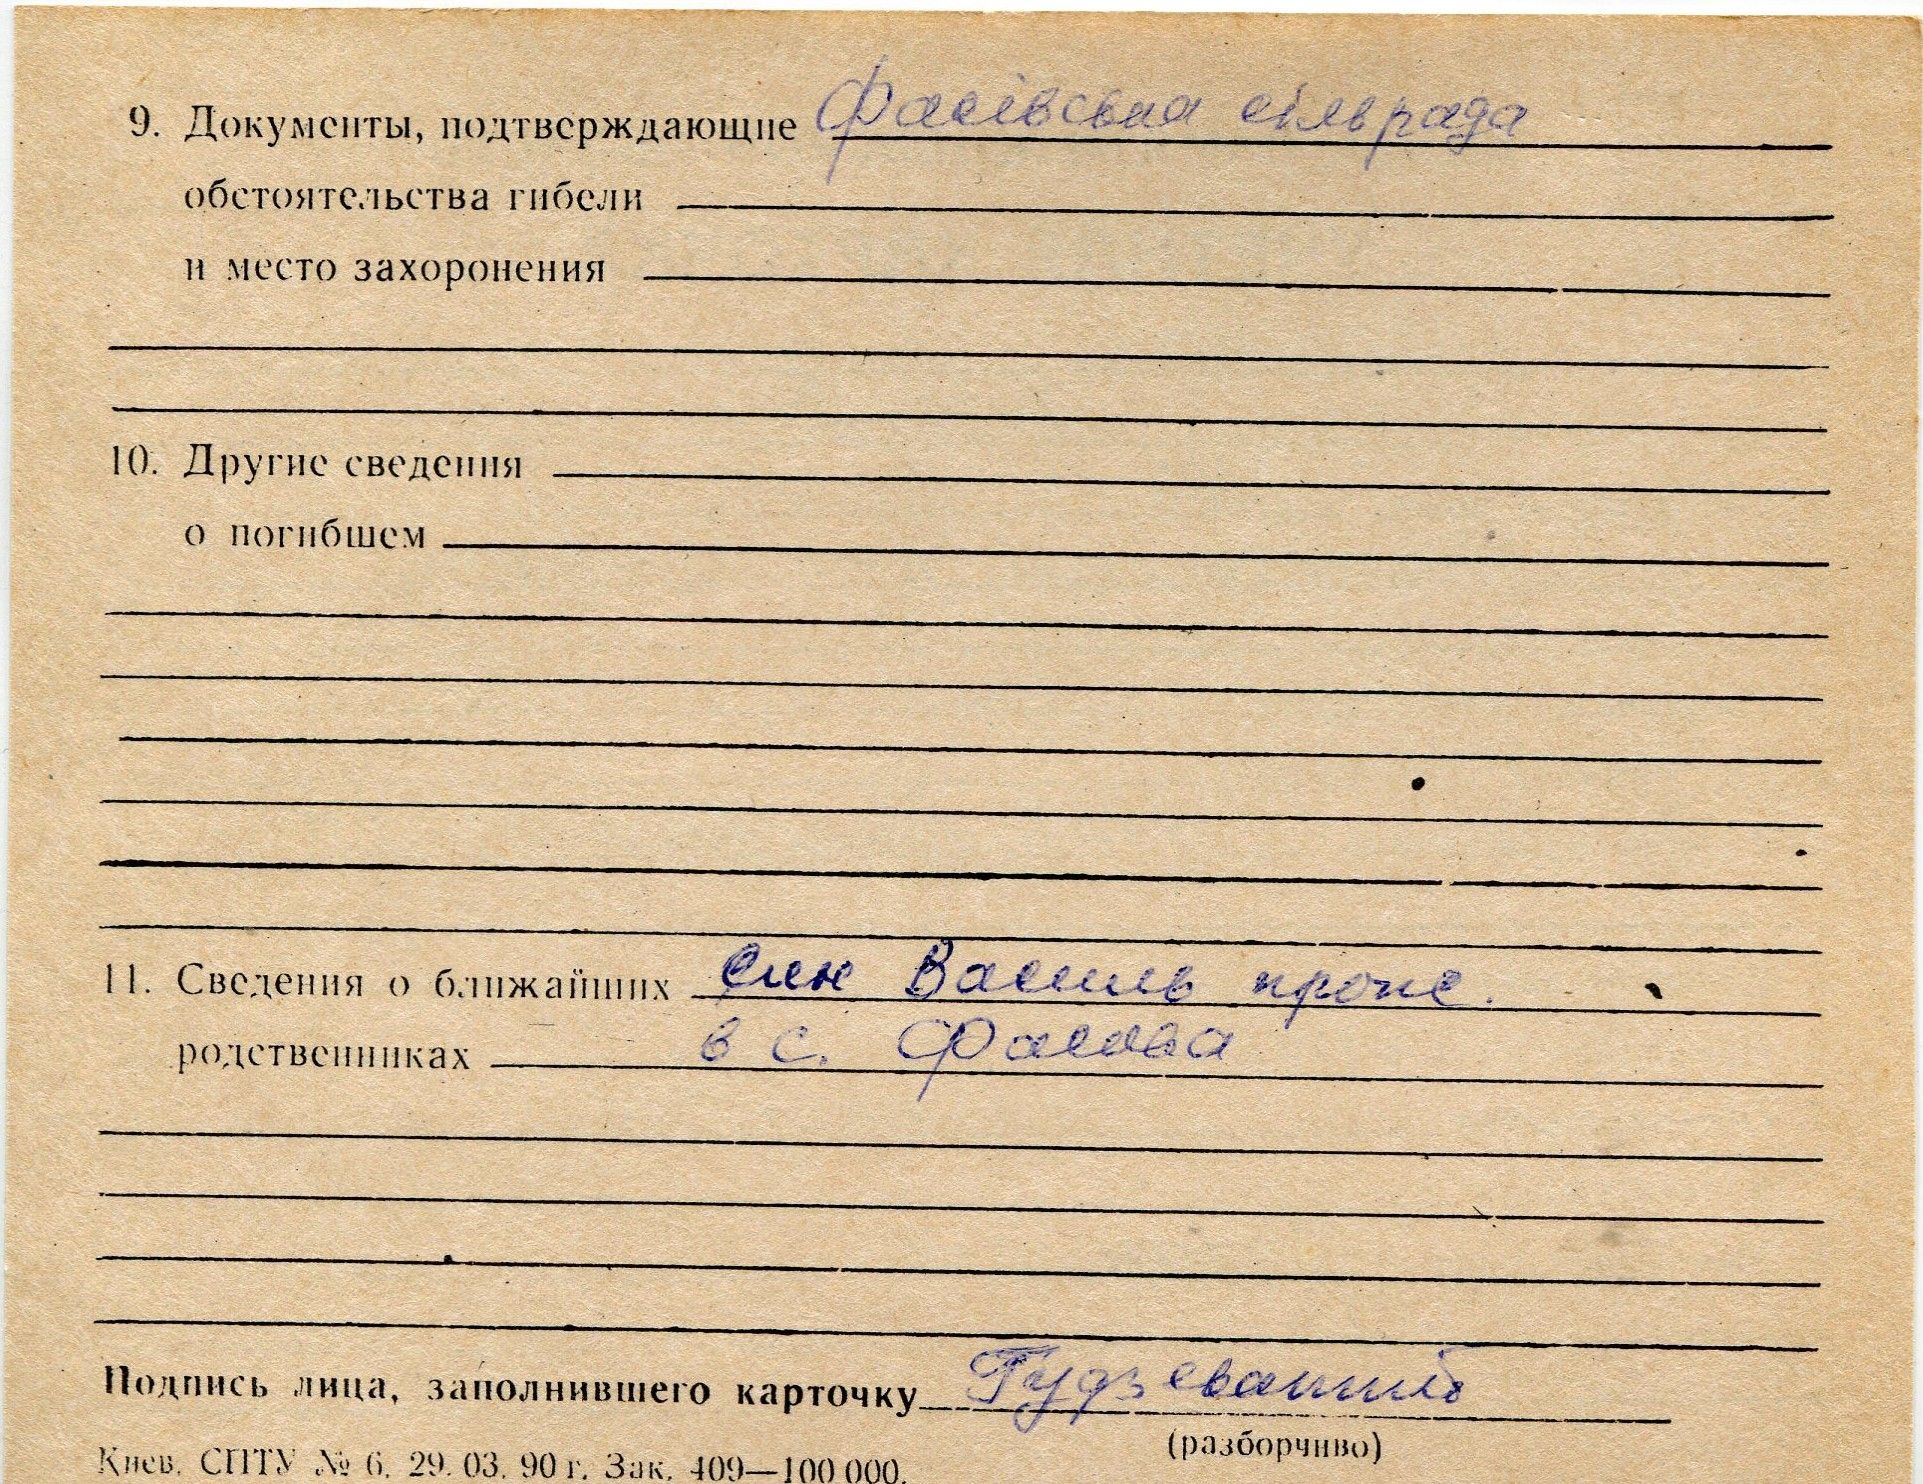 9. Документы, подтверждающие Фасівська сільрада
обстоятельства гибели
и место захоронения
10. Другие сведения
о погибшем
11. Сведения о ближайших син Василь прож.
родственниках в с. Фасова
Подпись лица, заполнившего карточку
(разборчиво)
Киев. СПТУ № 6. 29. 03. 90 г. Зак. 409—100 000.